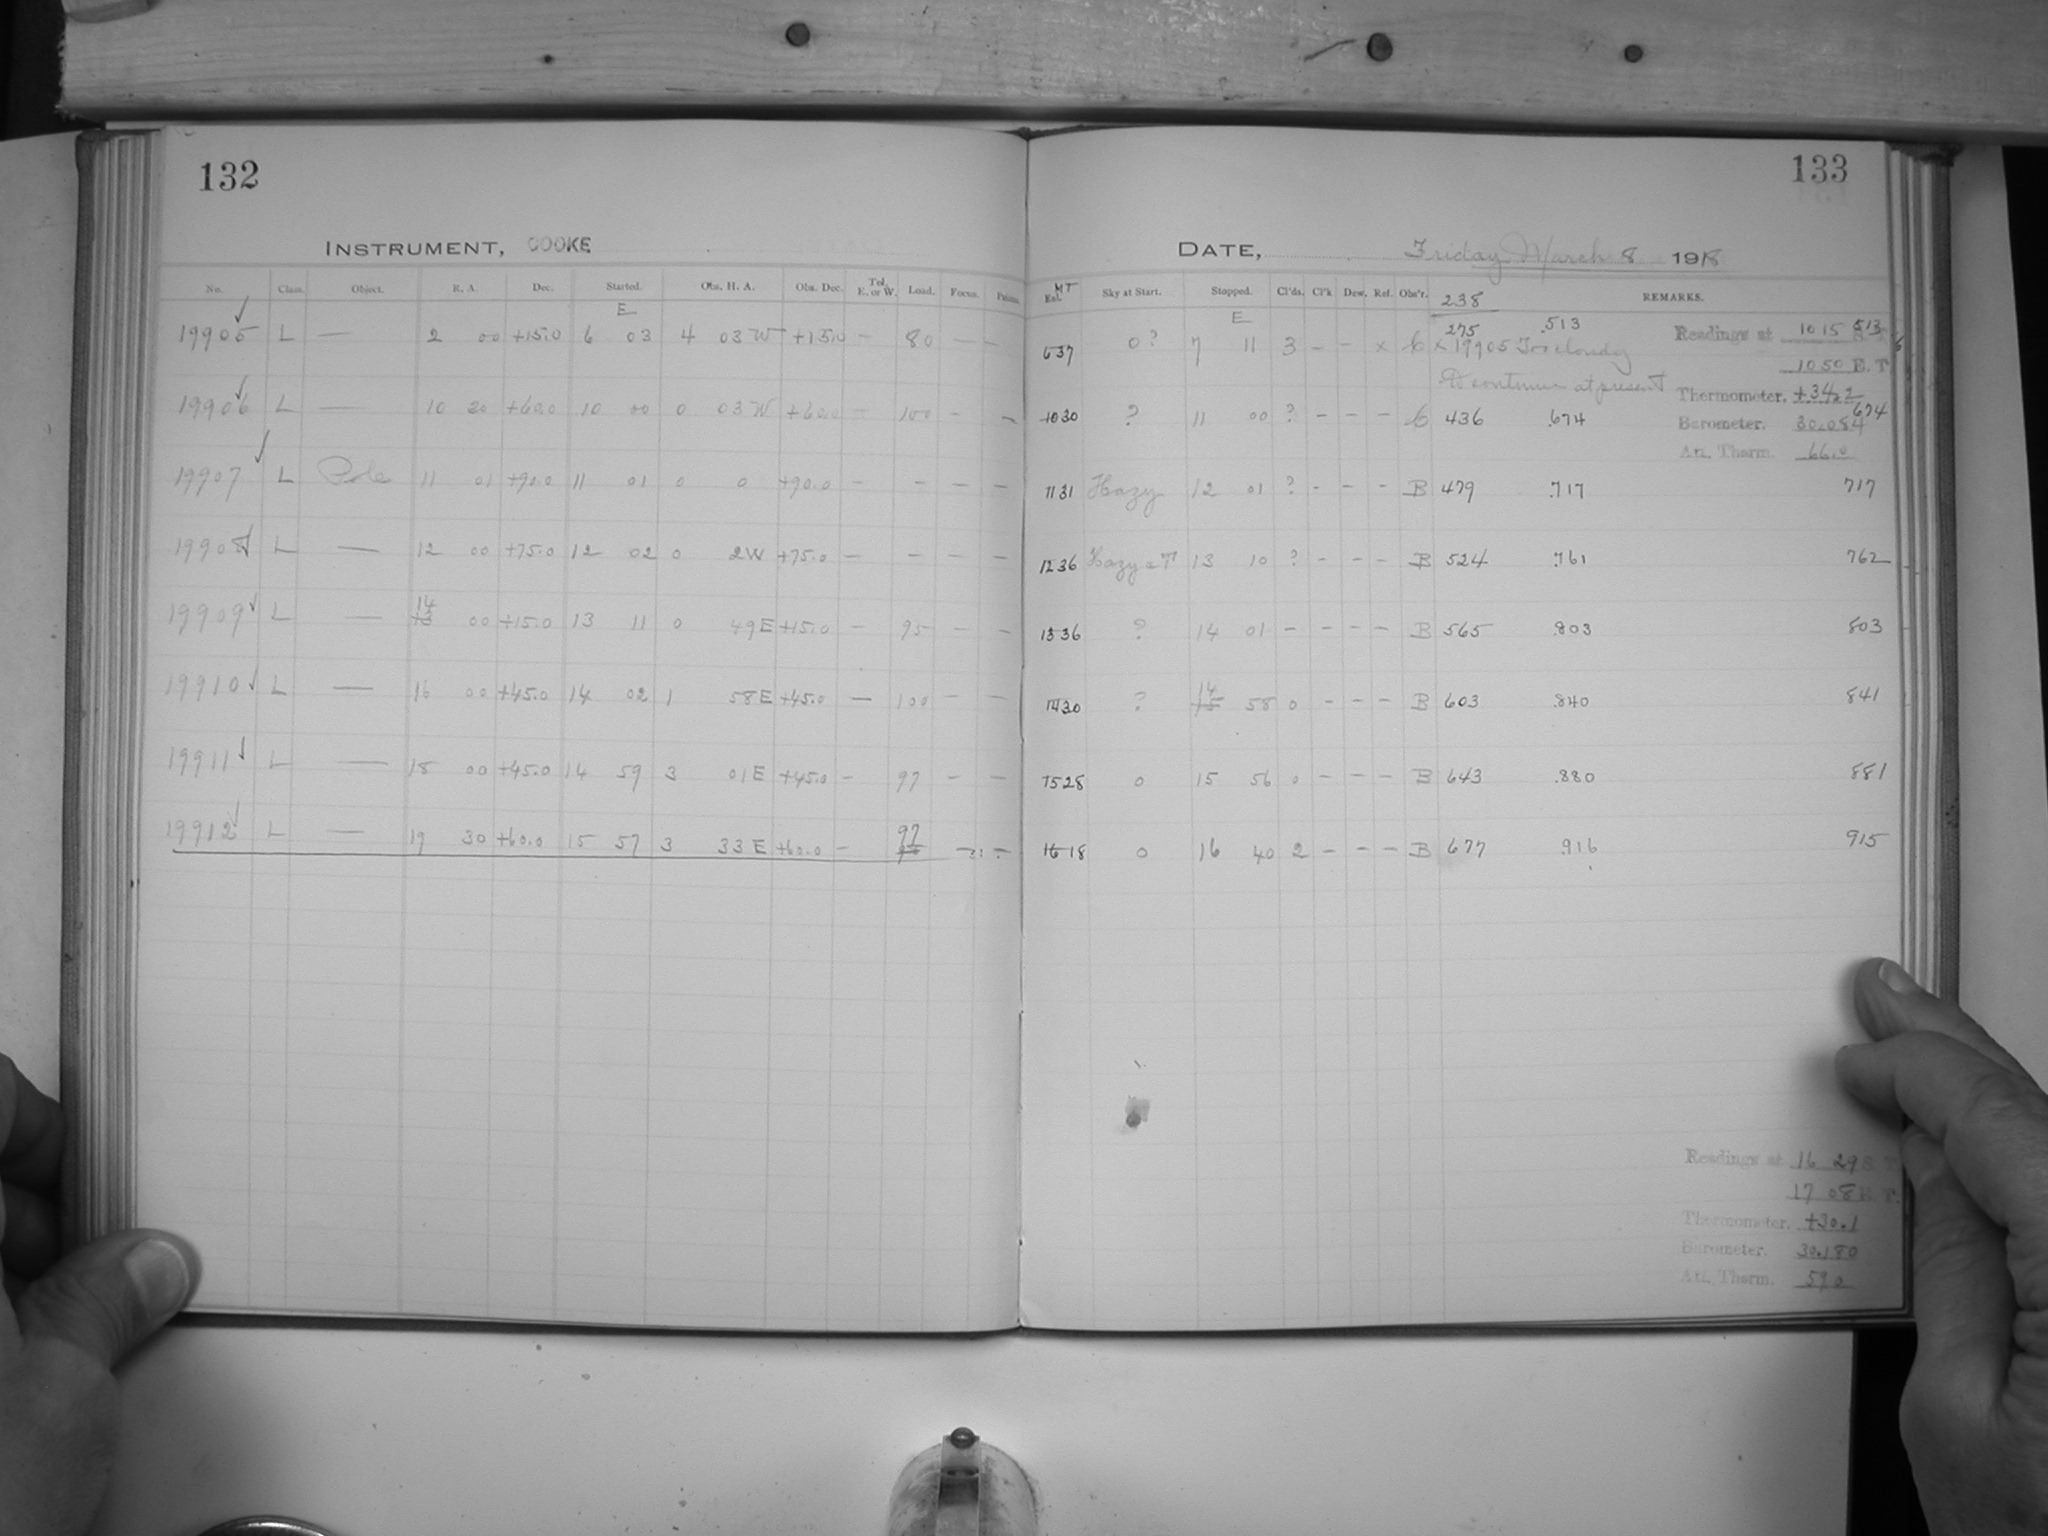 132
INSTRUMENT, COOKE
No. Class. Object. R. A. Dec. Started. Obs. H. A. Obs. Dec. Tel. E. or W. Load. Focus.
E
19905 L — 2 00 +15.0 6 03 4 03 W +15.0 — 80 — —
19906 L — 10 20 +60.0 10 00 0 03 W +60.0 — 100 - -
19907 L Pole 11 01 +90.0 11 01 0 0 +90.0 — — — —
19908 L — 12 00 +75.0 12 02 0 2W +75.0 — — — —
14
19909 L — 13 00 +15.0 13 11 0 49 E +15.0 — 95 — —
19910 L — 16 00 +45.0 14 02 1 58 E +45.0 — 100 — —
19911 L — 18 00 +45.0 14 59 3 01 E +45.0 — 97 — —
97
19912 L — 19 30 +60.0 15 57 3 33 E +60.0 —
133
DATE, Friday March 8 1918
MT
Sky at Start. Stopped. Cl'ds. Cl'k Dew. Ref. Obs'r. 238 REMARKS.
E
275 .513 Readings at 10 15 513
637 0? 7 11 3 - - x × 19905 Too cloudy
10 50 E. T.
to continue at present
Thermometer. +34.2
1030 ? 11 00 ? - - - 436 .674 674
Barometer. 30.084
Att. Therm. 66.0
1131 Hazy 12 01 ? - - - B 479 .717 717
1236 Hazy 13 10 ? - - - B 524 .761 762
1336 ? 14 01 - - - - B 565 .803 803
14
1430 ? 15 58 0 - - - B 603 .840 841
1528 0 15 56 0 - - - B 643 .880 881
1618 0 16 40 2 - - - B 677 .916 915
Readings at 16 29 S. T.
17 08 E. T.
Thermometer. +30.1
Barometer. 30.180
Att. Therm. 59.0